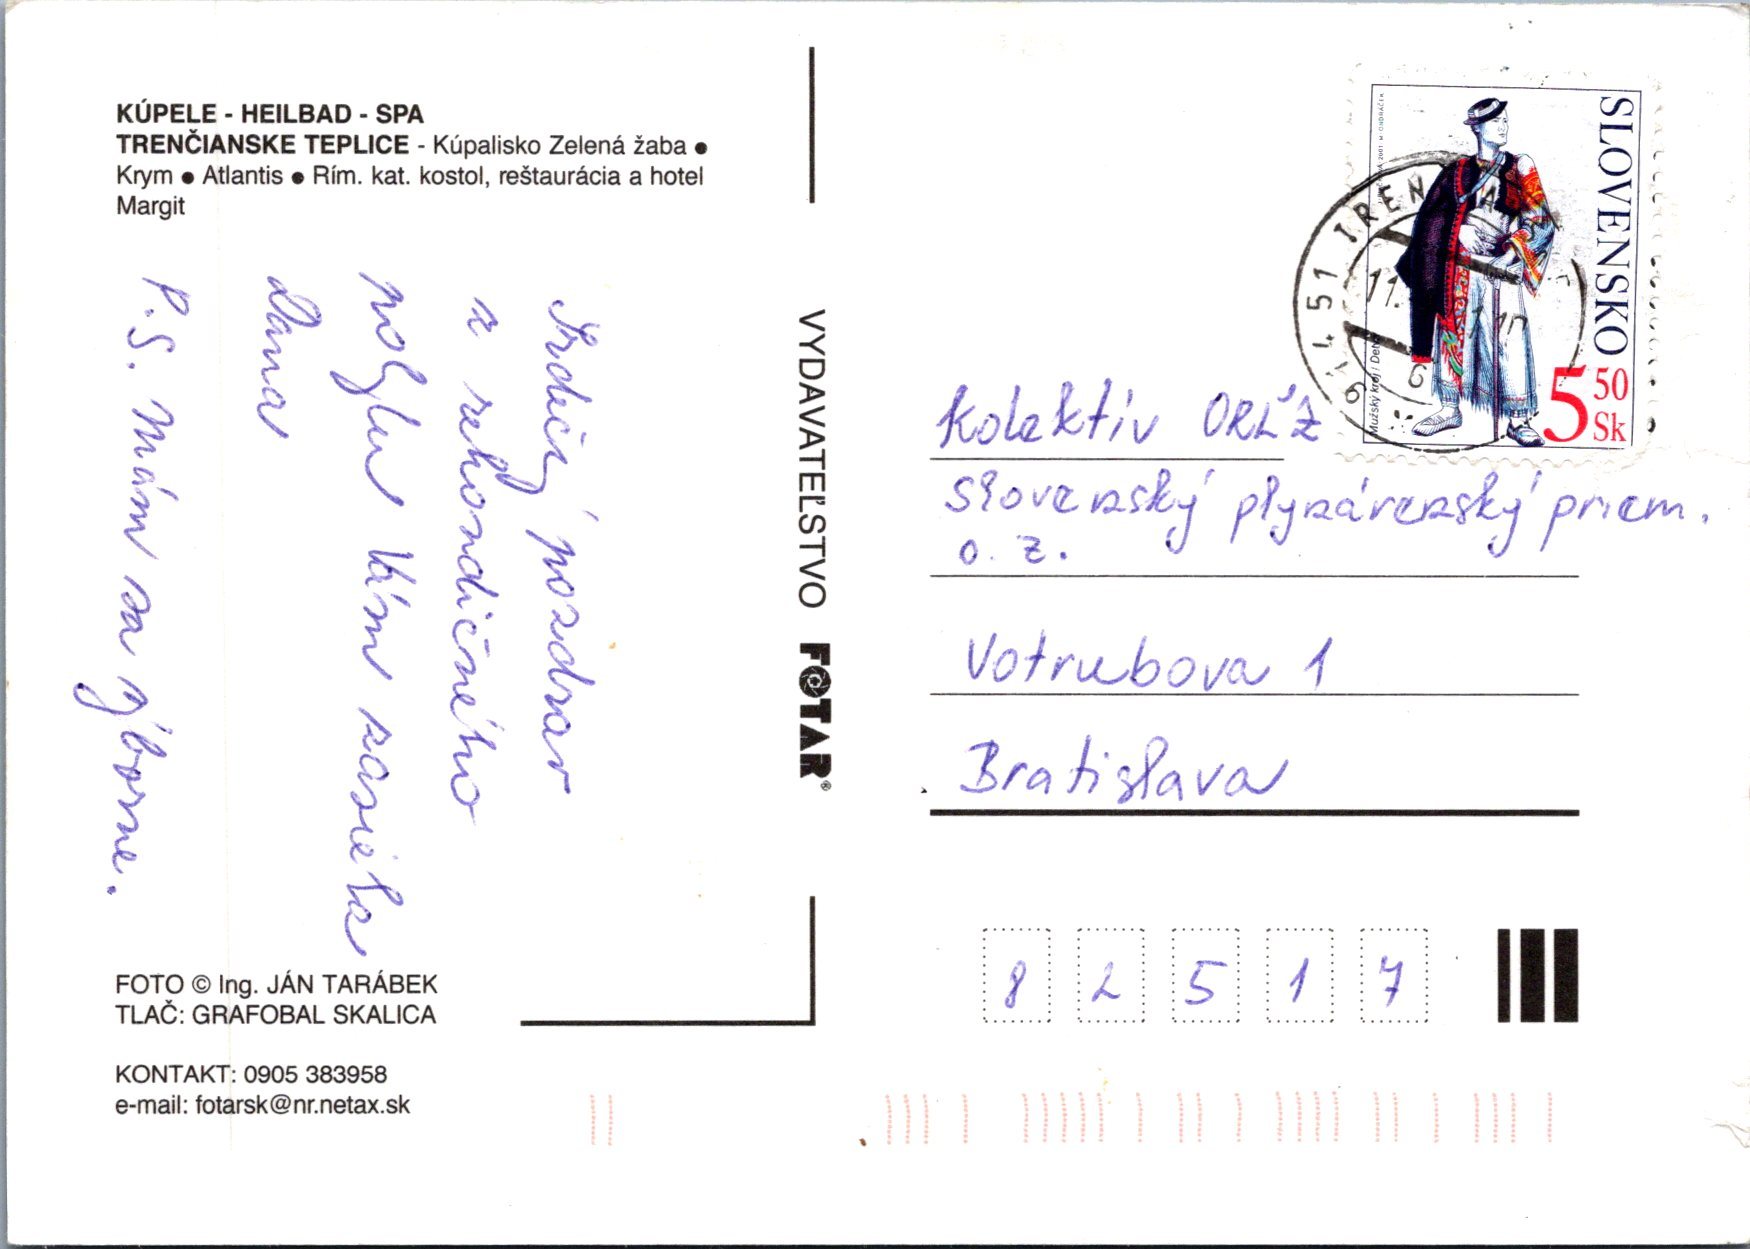 KÚPELE - HEILBAD - SPA
TRENČIANSKE TEPLICE - Kúpalisko Zelená žaba ●
Krym ● Atlantis ● Rím. kat. kostol, reštaurácia a hotel
Margit
Srdečný pozdrav
z rekondičného
pobytu Vám zasiela
Dana
P.S. Mám sa výborne.
FOTO © Ing. JÁN TARÁBEK
TLAČ: GRAFOBAL SKALICA
KONTAKT: 0905 383958
e-mail: fotarsk@nr.netax.sk
VYDAVATEĽSTVO FOTAR®
SLOVENSKO
5 50 Sk
Mužský kroj / Detva
2001 M. ONDRÁČEK
914 51 TREN
11.
Kolektív ORĽZ
Slovenský plynárenský priem.
o. z.
Votrubova 1
Bratislava
8 2 5 1 7